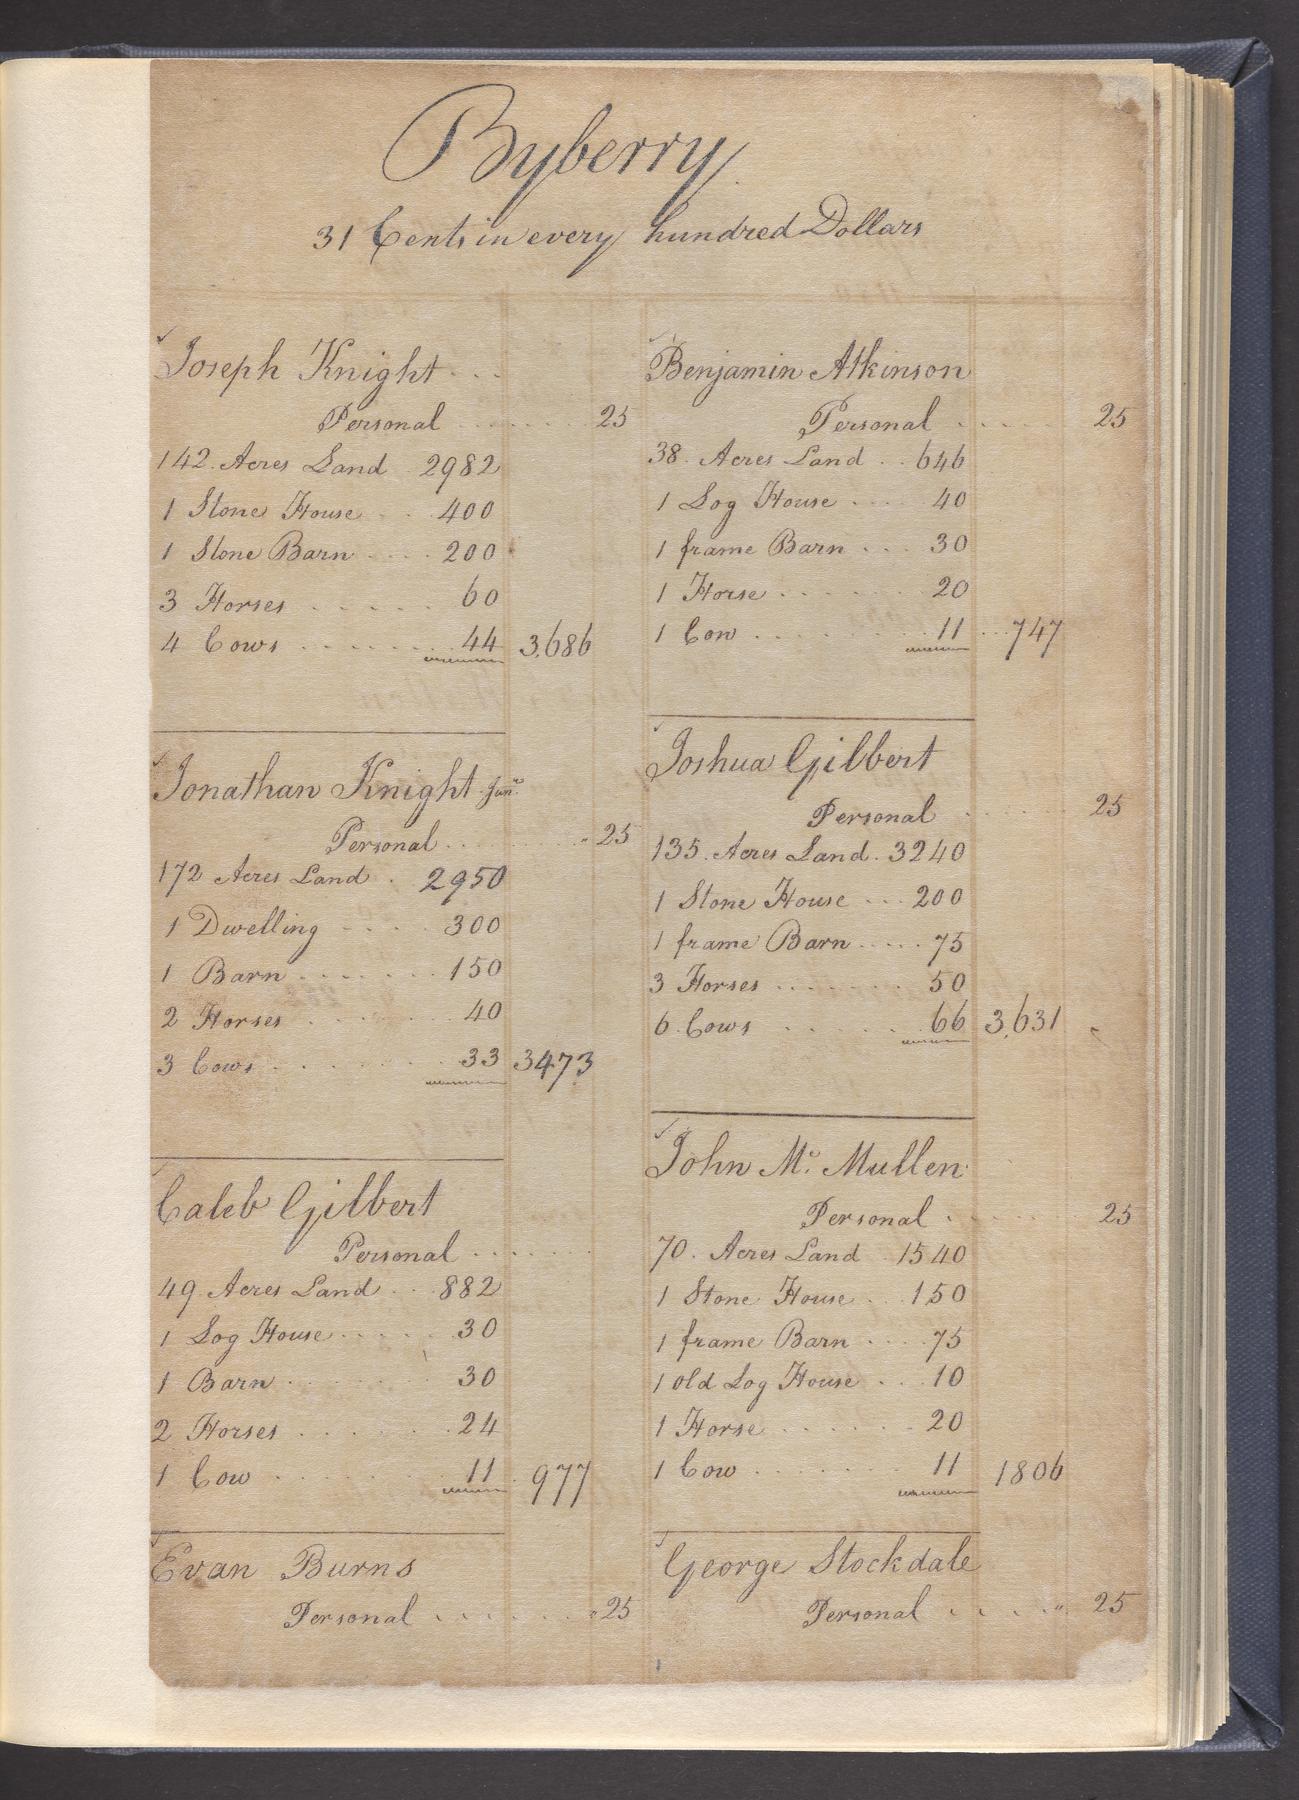 Byberry
31 Cents in every hundred Dollars
Joseph Knight
Personal 25
142 Acres Land 2982
1 Stone House 400
1 Stone Barn 200
3 Horses 60
4 Cows 44 3,686
Jonathan Knight Junr.
Personal 25
172 Acres Land 2950
1 Dwelling 300
1 Barn 150
2 Horses 40
3 Cows 33 3473
Caleb Gilbert
Personal
49 Acres Land 882
1 Log House 30
1 Barn 30
2 Horses 24
1 Cow 11 977
Evan Burns
Personal 25
Benjamin Atkinson
Personal 25
38 Acres Land 646
1 Log House 40
1 frame Barn 30
1 Horse 20
1 Cow 11 747
Joshua Gilbert
Personal 25
135 Acres Land 3240
1 Stone House 200
1 frame Barn 75
3 Horses 50
6 Cows 66 3,631
John Mc. Mullen
Personal 25
70 Acres Land 1540
1 Stone House 150
1 frame Barn 75
1 old Log House 10
1 Horse 20
1 Cow 11 1806
George Stockdale
Personal 25